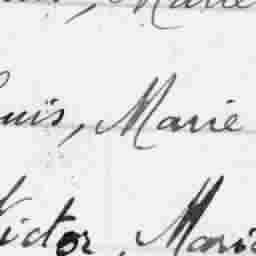 Marie
uis, Marie
Victor, Marie